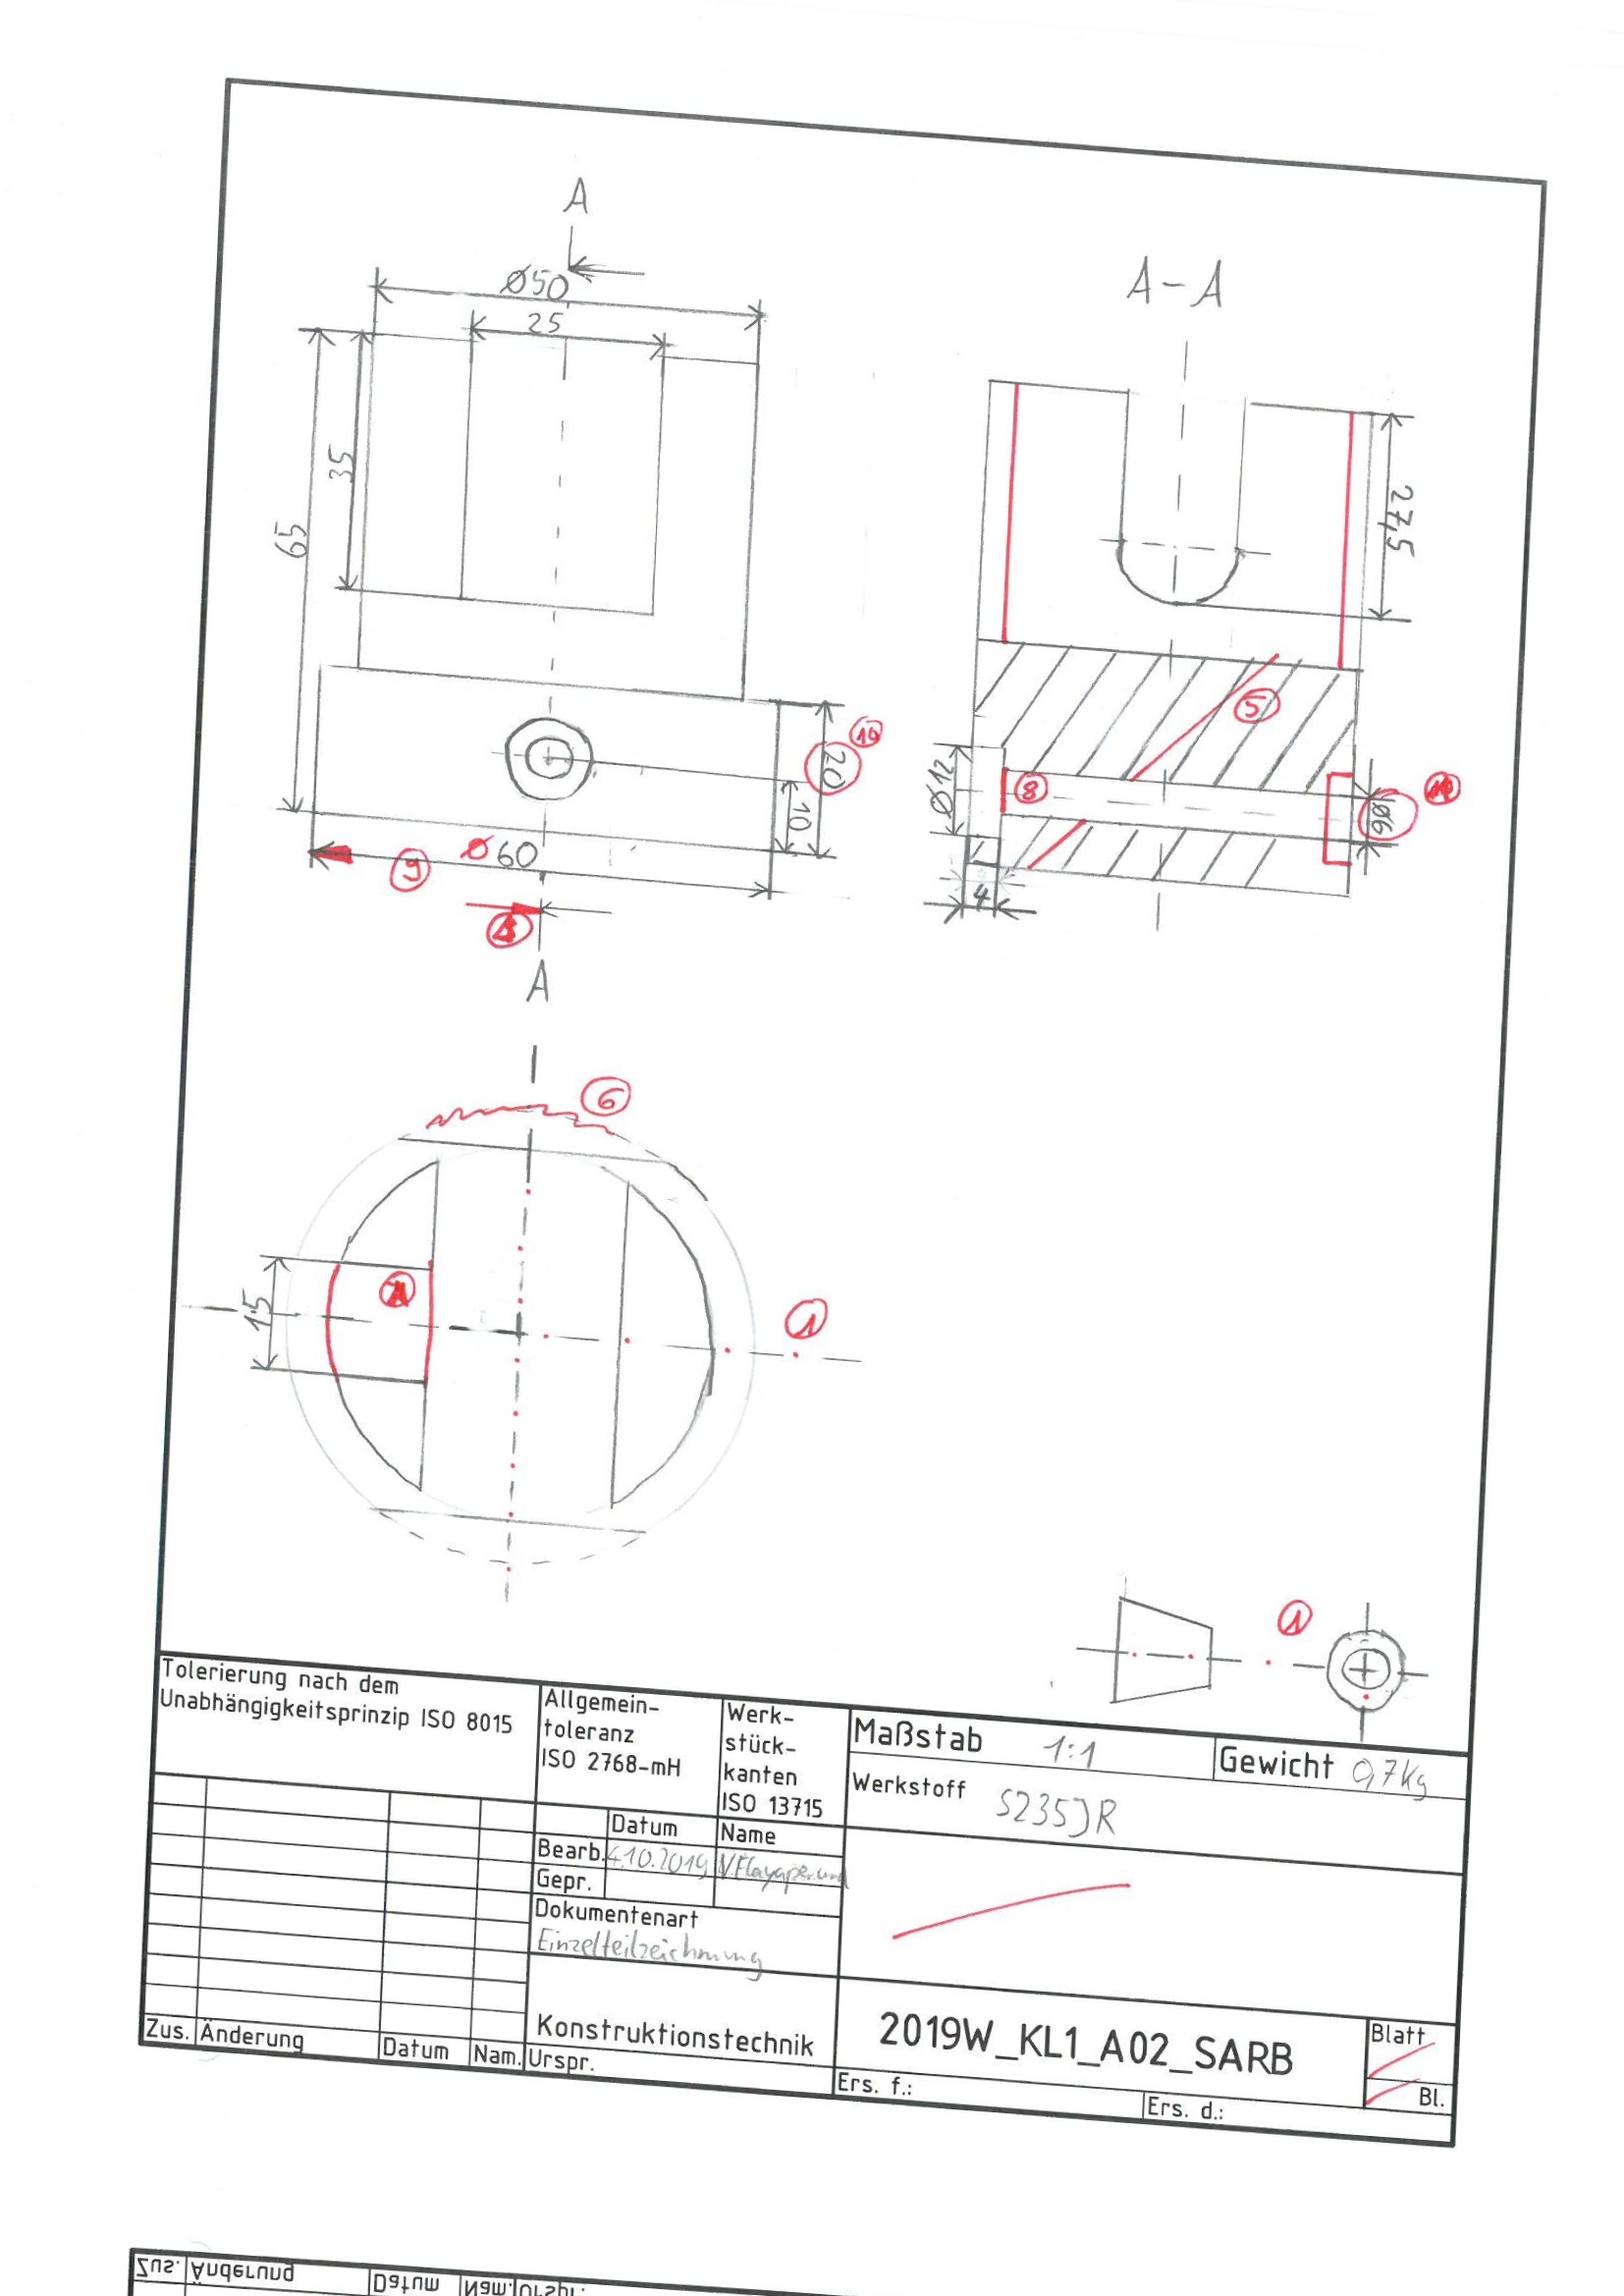 A
Ø50
25
35
65
20
10
10
Ø60
9
A
A-A
27,5
5
8
Ø12
Ø6
4
6
15
1
1
Tolerierung nach dem
Unabhängigkeitsprinzip ISO 8015
Allgemein-
toleranz
ISO 2768-mH
Werk-
stück-
kanten
ISO 13715
Maßstab 1:1
Gewicht 0,7Kg
Werkstoff S235JR
Datum Name
Bearb. 4.10.2019
Gepr.
Dokumentenart
Einzelteilzeichnung
Konstruktionstechnik
2019W_KL1_A02_SARB
Blatt
Bl.
Zus. Änderung Datum Nam. Urspr.
Ers. f.:
Ers. d.:
Zus. Änderung Datum Nam. Urspr.